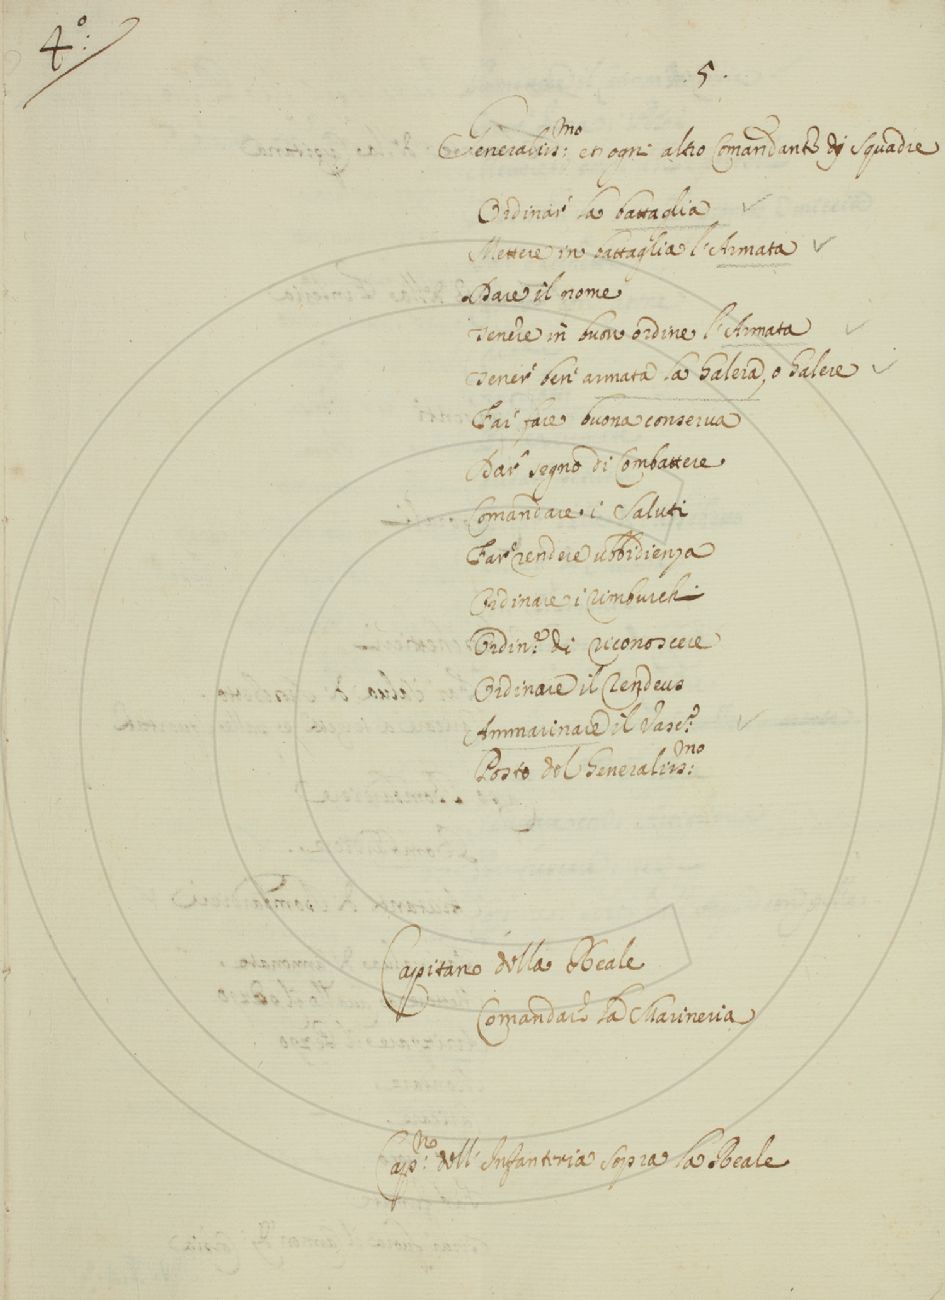 4.º:
. 5 .
Generaliss:mo et ogni altro Comandante di Squadre
Ordinar la battaglia
Mettere in battaglia l'Armata
Dare il nome
Tenere in buon ordine l'Armata
Tener ben armata la Galera, o Galere
Far fare buona conserua
Dar segno di Combattere
Comandare i Saluti
Far rendere ubbidienza
Ordinare i rimburchi
Ordin:e di riconoscere
Ordinare il Rendeus
Ammarinare il Vasc:o
Posto del Generaliss:mo
Capitano della Reale
Comandar la Marineria
Cap:no dell' Infanteria sopra la Reale